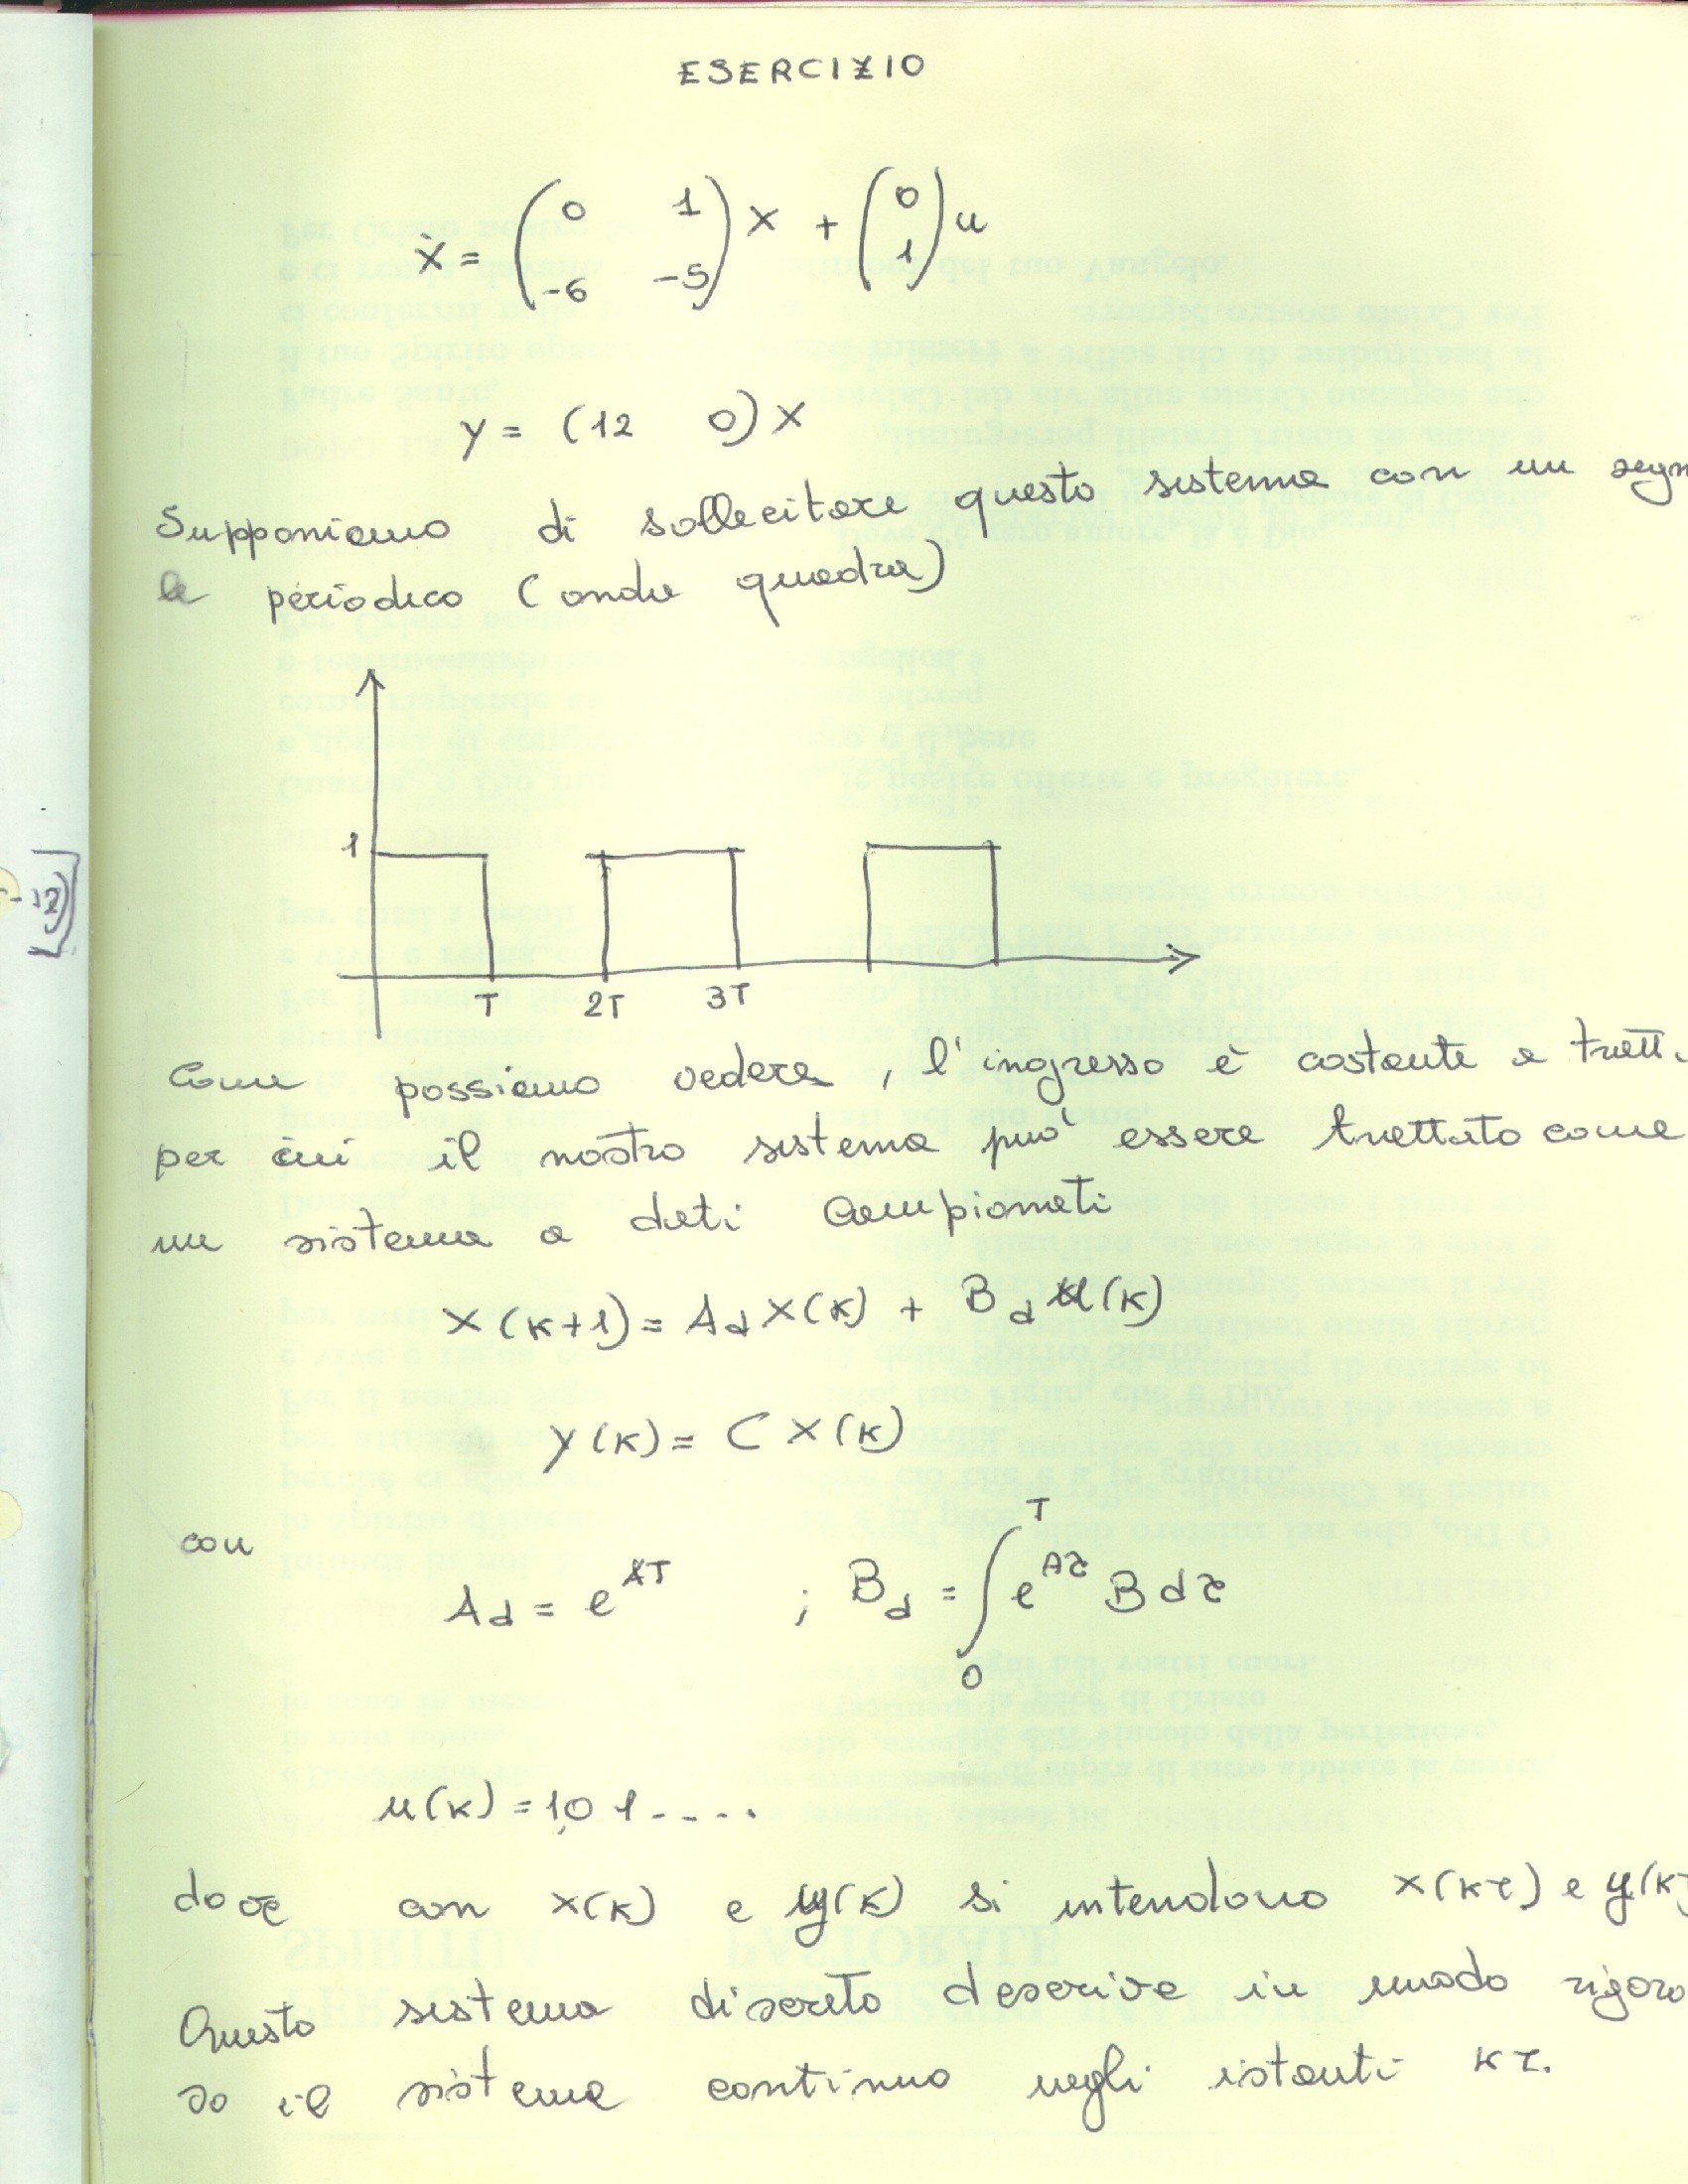 ESERCIZIO
ẋ = ( 0 1 ) x + ( 0 ) u
( -6 -5 ) ( 1 )
y = (12 0) x
Supponiamo di sollecitare questo sistema con un segn
le periodico (onda quadra)
1
T 2T 3T
-12)]
Come possiamo vedere, l'ingresso è costante a tratti
per cui il nostro sistema può essere trattato come
un sistema a dati campionati
x(k+1) = Ad x(k) + Bd u(k)
y(k) = C x(k)
con
Ad = e^AT ; Bd = ∫₀ᵀ e^Aτ B dτ
u(k) = 1,0 1 - - - -
dove con x(k) e y(k) si intendono x(kτ) e y(k
Questo sistema discreto descrive in modo rigoro
so il sistema continuo negli istanti kτ.